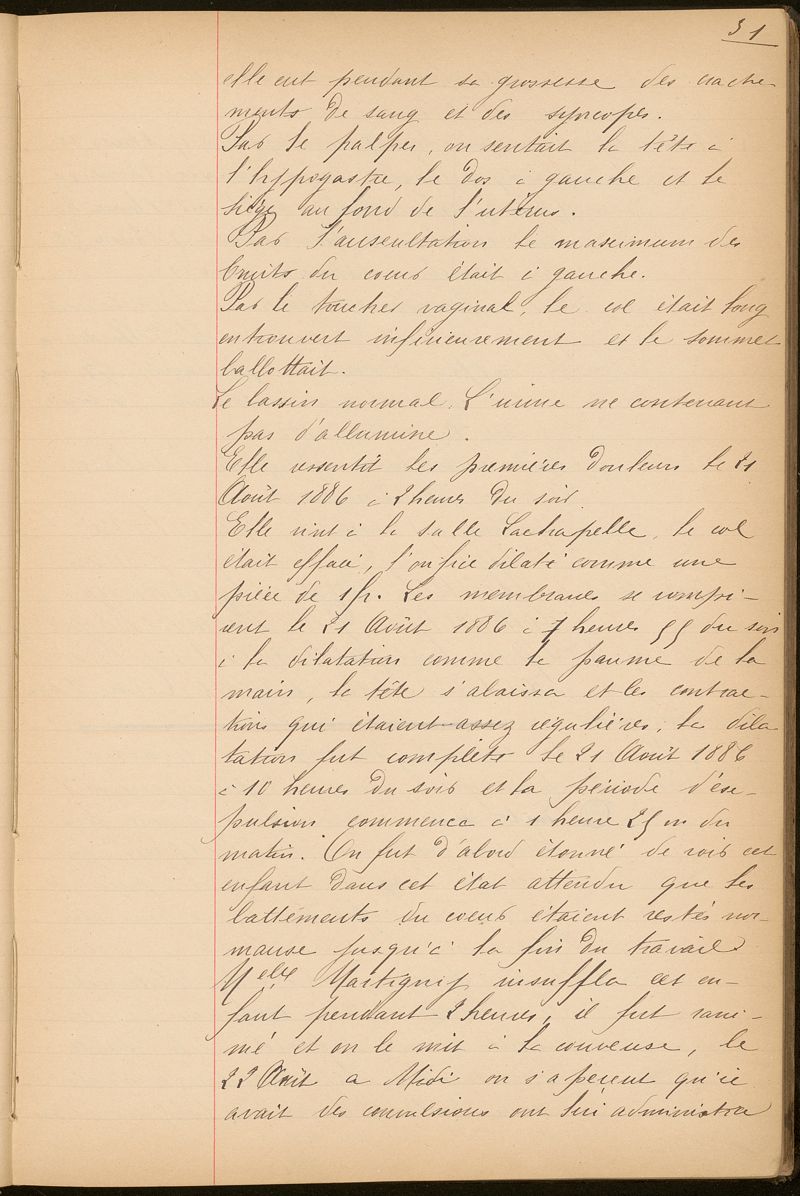 31
elle eut pendant sa grossesse des crache-
ments de sang et des syncopes.
Par le palper, on sentait la tête à
l'hypogastre, le dos à gauche et le
siège au fond de l'utérus.
Par l'auscultation le maximum des
bruits du coeur était à gauche.
Par le toucher vaginal, le col était long
entrouvert inférieurement et le sommet
ballottait.
Le bassin normal. L'urine ne contenant
pas d'allumine.
Elle ressentit les premières douleurs le 21
Août 1886 à 2 heures du soir
Elle vint à la salle Lachapelle, le col
était effacé, l'orifice dilaté comme une
pièce de 1 fr. Les membranes se rompi-
rent le 21 Août 1886 à 7 heures 55 du soir
à la dilatation comme la paume de la
main, la tête s'abaissa et les contrac-
tions qui étaient assez régulières, la dila
tation fut complète le 21 Août 1886
à 10 heures du soir et la période d'ex-
pulsion commença à 1 heure 25 m du
matin. On fut d'abord étonné de voir cet
enfant dans cet état attendu que les
battements du coeur étaient restés nor-
maux jusqu'à la fin du travail
Melle Martigny insuffla cet en-
fant pendant 2 heures, il fut rani-
mé et on le mit à la couveuse, le
22 Août a Midi on s'aperçut qu'il
avait des convulsions ont lui administra